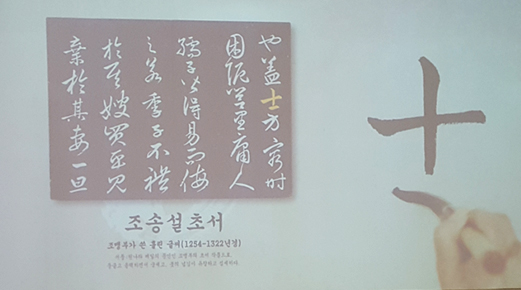 也蓋士方窮時
困阨閭里庸人
孺子皆得易而侮
之若季子不禮
於其嫂買臣見
棄於其妻一旦
十
조송설초서
조맹부가 쓴 흘린 글씨(1254~1322년경)